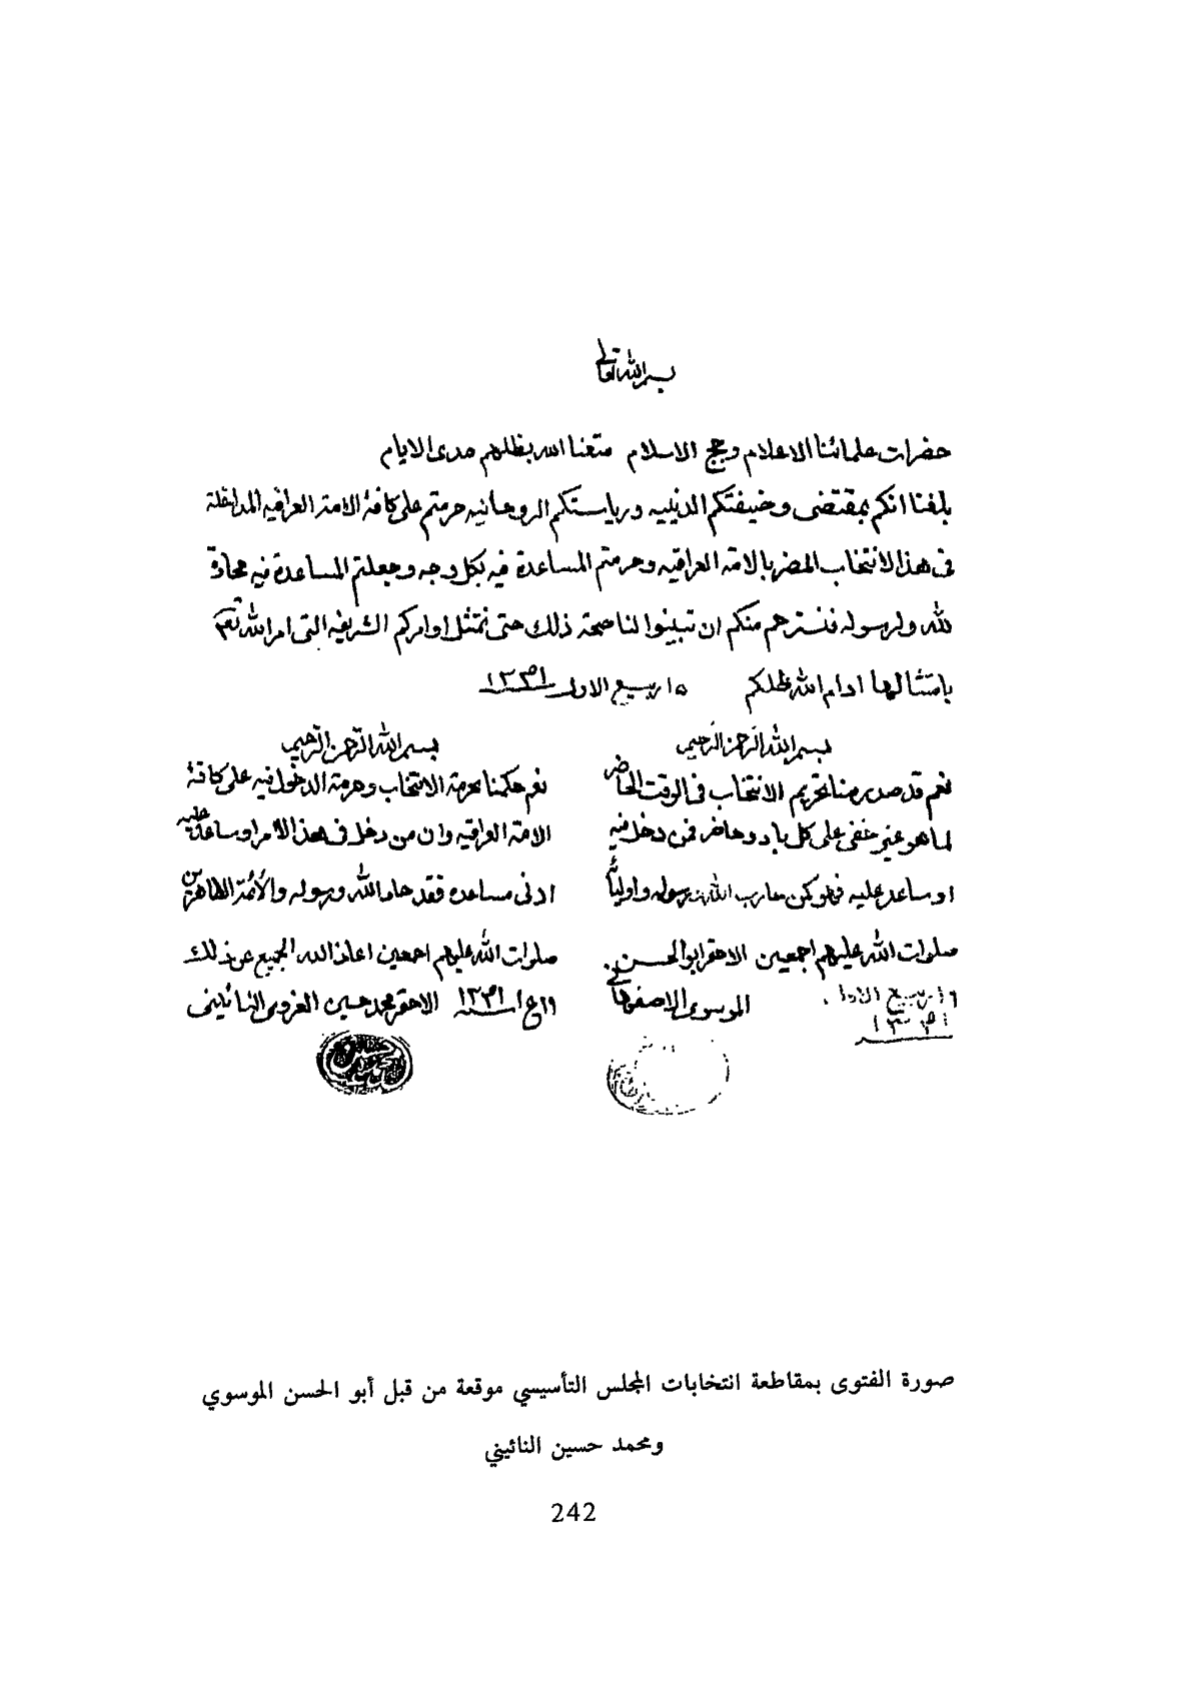 بسم الله تعالى
حضرات علمائنا الاعلام وحجج الاسلام متعنا الله بظلهم مدى الايام
بلغنا انكم بمقتضى وضيفتكم الدينيه ورياستكم الروحانيه حرمتم على كافة الامة العراقيه المداخلة
فى هذا الانتخاب المضر بالامة العراقيه وحرمتم المساعدة فيه بكل وجه وجعلتم المساعدة فيه محادة
لله ولرسوله فنسترحم منكم ان تبينوا لنا صحة ذلك حتى نمتثل اوامركم الشريفه التى امر الله تعالى
بامتثالها ادام الله ظلكم ١٥ ربيع الاول ١٣٤١
بسم الله الرحمن الرحيم
نعم قد صدر منا تحريم الانتخاب فى الوقت الحاضر
لما هو غير خفى على كل باد وحاضر فمن دخل فيه
او ساعد عليه فهو كمن حارب الله ورسوله واوليائه
صلوات الله عليهم اجمعين الاحقر ابو الحسن
الموسوى الاصفهانى
ربيع الاول
١٣٤١
بسم الله الرحمن الرحيم
نعم حكمنا بحرمة الانتخاب وحرمة الدخول فيه على كافة
الامة العراقيه وان من دخل فى هذا الأمر او ساعد عليه
ادنى مساعده فقد حاد الله ورسوله والأئمة الطاهرين
صلوات الله عليهم اجمعين اعاذ الله الجميع عن ذلك
١٣٤١ الاحقر محمد حسين الغروى النائينى
صورة الفتوى بمقاطعة انتخابات المجلس التأسيسي موقعة من قبل أبو الحسن الموسوي
ومحمد حسين النائيني
242